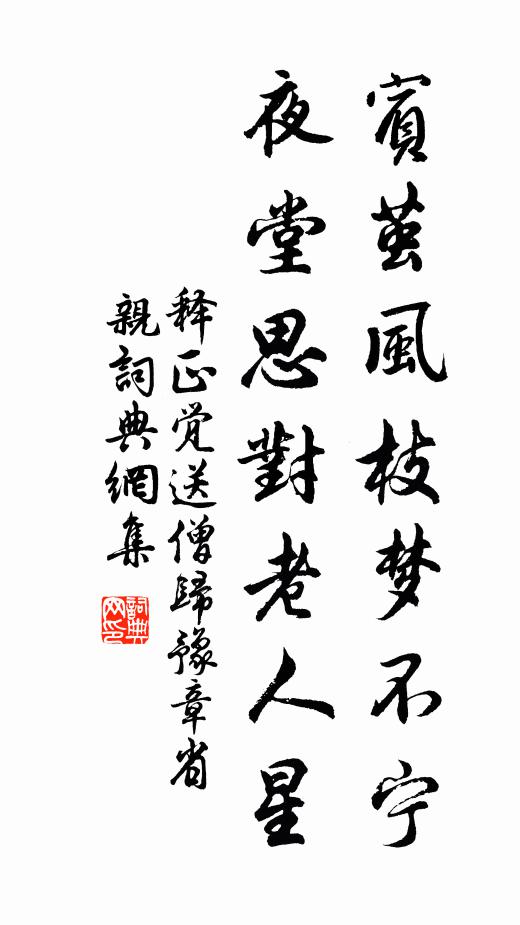 賓茧風枝梦不宁
夜堂思對老人星
释正觉送僧歸豫章省
親詞典網集
詞典
网印